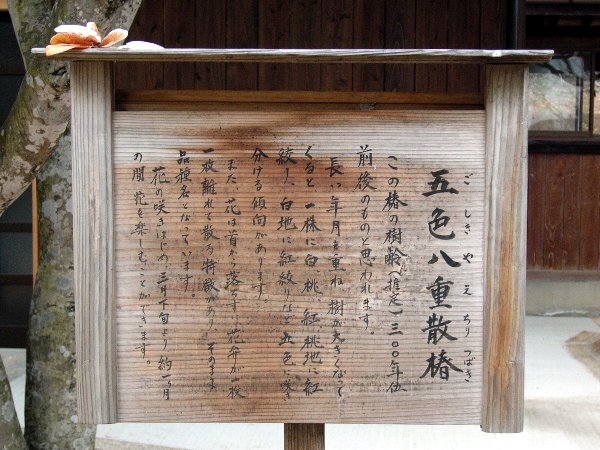 五色八重散椿
ごしきやえちりつばき
この椿の樹齢(推定)三〇〇年位
前後のものと思われます。
長い年月を重ね、樹が大きくなって
くると一株に白桃、紅桃地に紅
絞り、白地に紅絞りなど五色に咲き
分ける傾向があります。
また、花は首から落ちず、花弁が一枚
一枚離れて散る特徴があり、そのまま
品種名となっています。
花の咲きはじめ三月下旬より約一ヵ月
の間花を楽しむことができます。